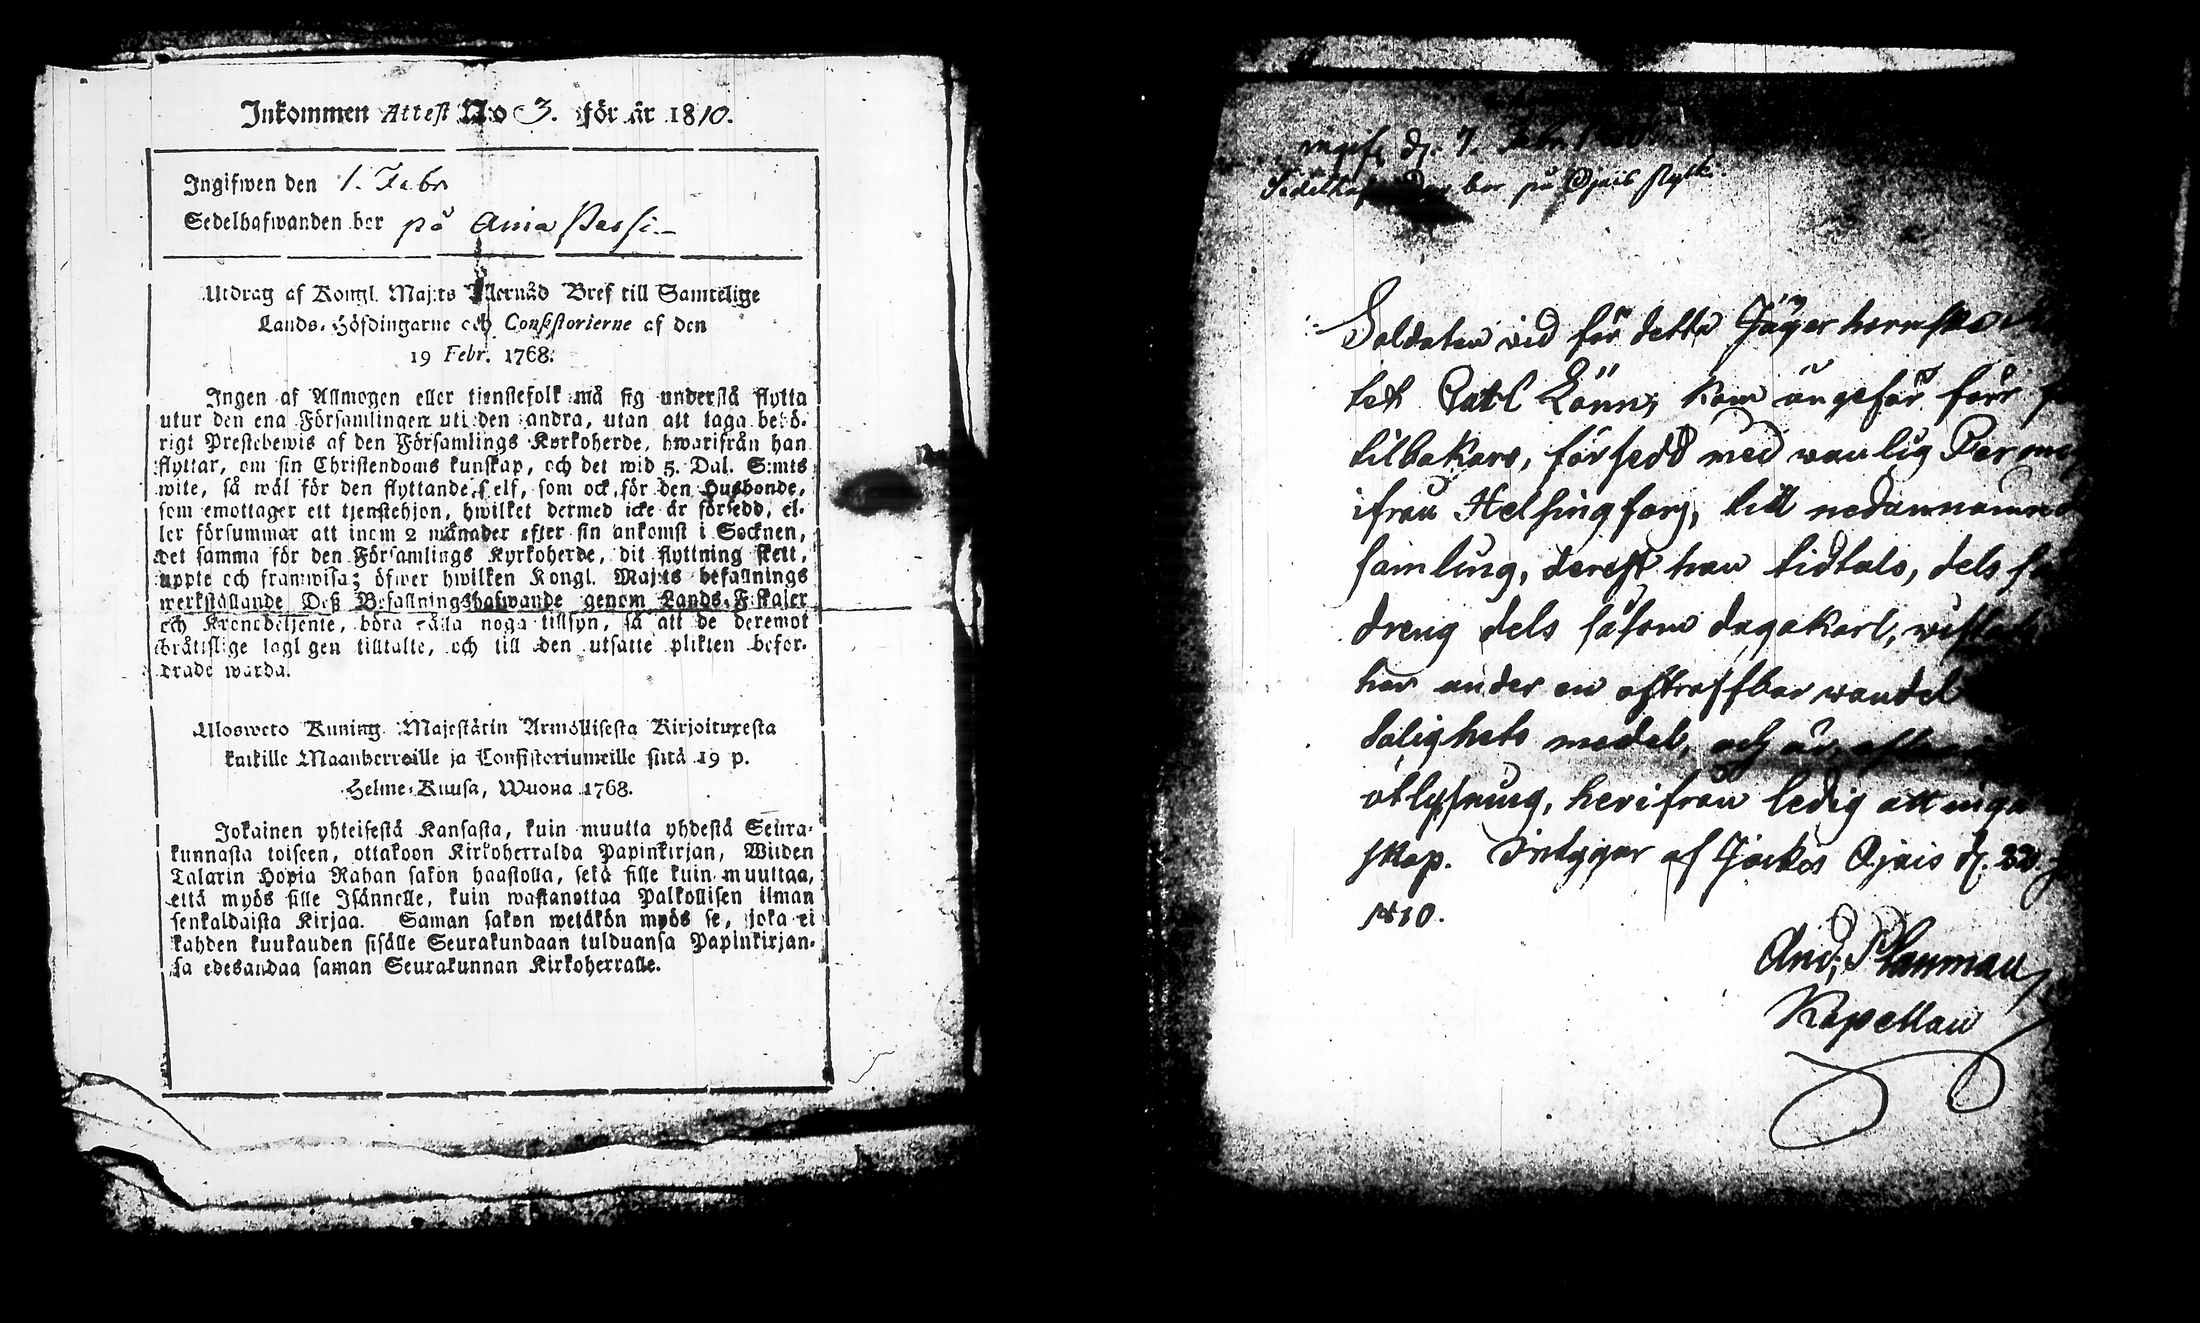 Inkommen Attest No 3. för år 1810.
Ingifwen den 1. Febr
Sedelhafwanden bor på Ania Passi
Utdrag af Kongl. Maj:ts Allernåd Bref till Samtelige
Lands-Höfdingarne och Consistorierne af den
19 Febr. 1768.
Ingen af Allmogen eller tienstefolk må sig understå flytta
utur den ena Församlingen uti den andra, utan att taga behö-
rigt Prestebewis af den Församlings Kyrkoherde, hwarifrån han
flyttar, om sin Christendoms kunskap, och det wid 5. Dal. S:mts
wite, så wäl för den flyttande self, som ock för den Husbonde,
som emottager ett tjenstehjon, hwilket dermed icke är försedd, el-
ler försummar att inom 2 månader efter sin ankomst i Socknen,
det samma för den Församlings Kyrkoherde, dit flyttning skett,
uppte och framwisa; öfwer hwilken Kongl. Maj:ts befallnings
werkställande Deß Befallningshafwande genom Lands-Fiskaler
och Kronobetjente, böra hålla noga tillsyn, så att de deremot
bråttslige lagligen tilltalte, och till den utsatte plikten befor-
drade warda.
Ulosweto Kuning. Majestätin Armollisesta Kirjoituxesta
kaikille Maanherroille ja Consistoriumeille siitä 19 p.
Helme-Kuusa, Wuona 1768.
Jokainen yhteisestä Kansasta, kuin muutta yhdestä Seura-
kunnasta toiseen, ottakoon Kirkoherralda Papinkirjan, Wiiden
Talarin Hopia Rahan sakon haastolla, sekä sille kuin muuttaa,
että myös sille Isännelle, kuin wastanottaa Palkollisen ilman
senkaldaista Kirjaa. Saman sakon wetäkön myös se, joka ei
kahden kuukauden sisälle Seurakundaan tulduansa Papinkirjan-
sa edesandaa saman Seurakunnan Kirkoherralle.
ingifz d. 7. Febr.
bor på Ojais
Soldaten wid för detta Jägerhornska
tet Carl Lönn, kom ungefär förr
tilbakars, försedd med wanlig
ifrån Helsingfors, till nedannamnde
samling, derest han tidtals, dels
dreng dels såsom dagakarl, wistats
har under en ostraffbar wandel
salighets medel, och är, efter
aflysning, herifrån ledig att ingå
skap. Intygar af Jockis Ojais d. 22
1810.
And: Planman
Kapellan